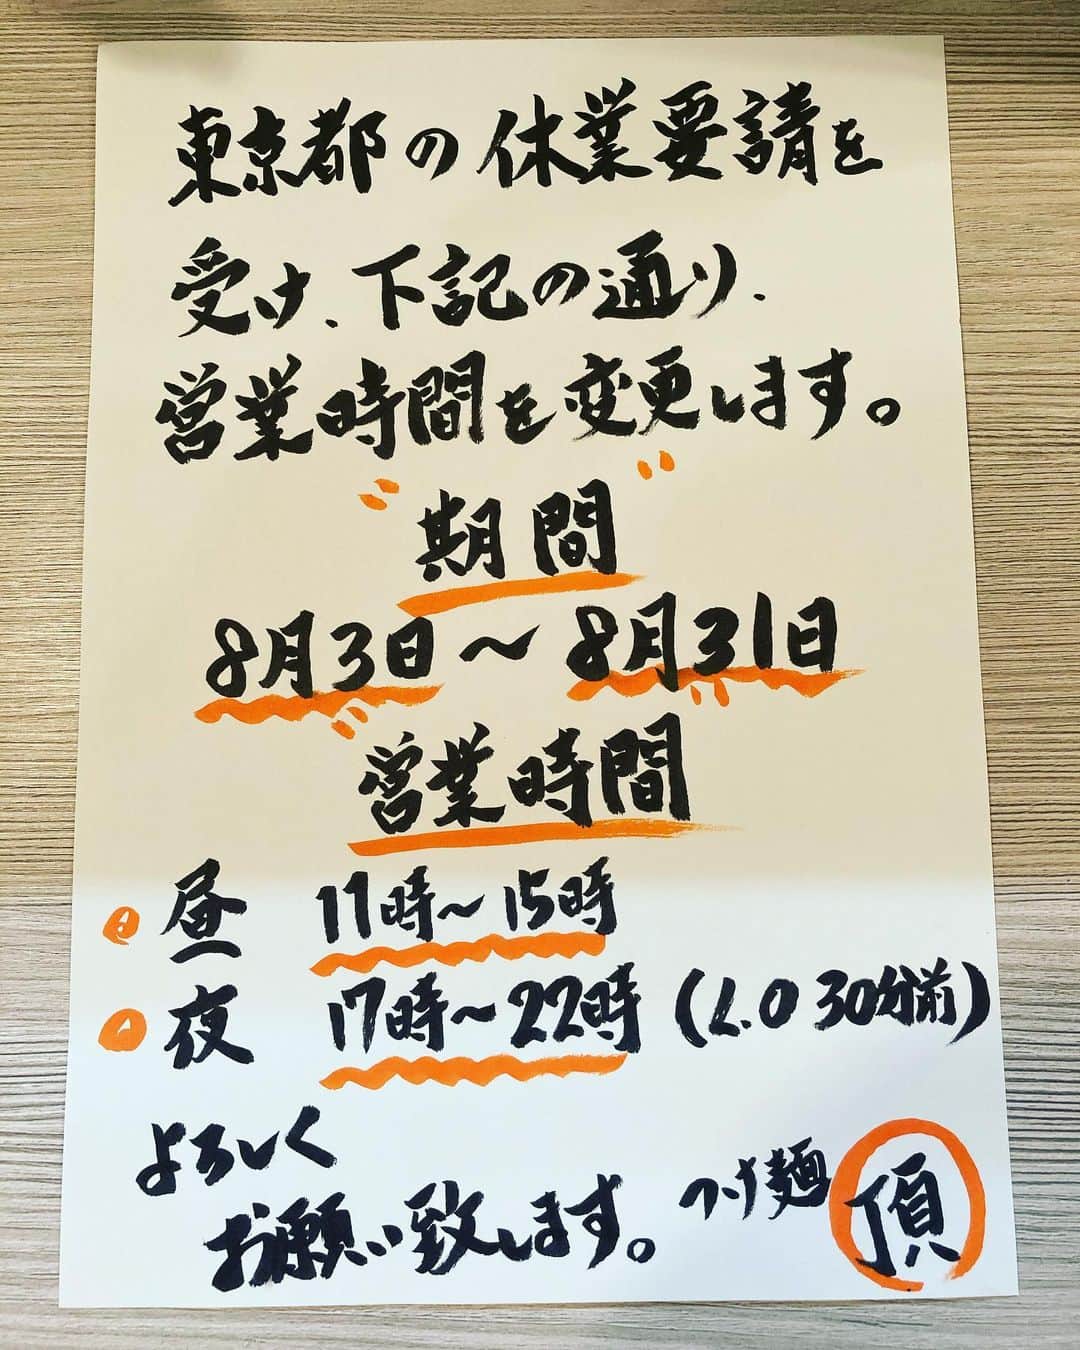 東京都の休業要請を
受け、下記の通り、
営業時間を変更します。
"期間"
8月3日〜8月31日
"営業時間"
昼 11時〜15時
夜 17時〜22時(L.O 30分前)
よろしく
お願い致します。
つけ麺 頂